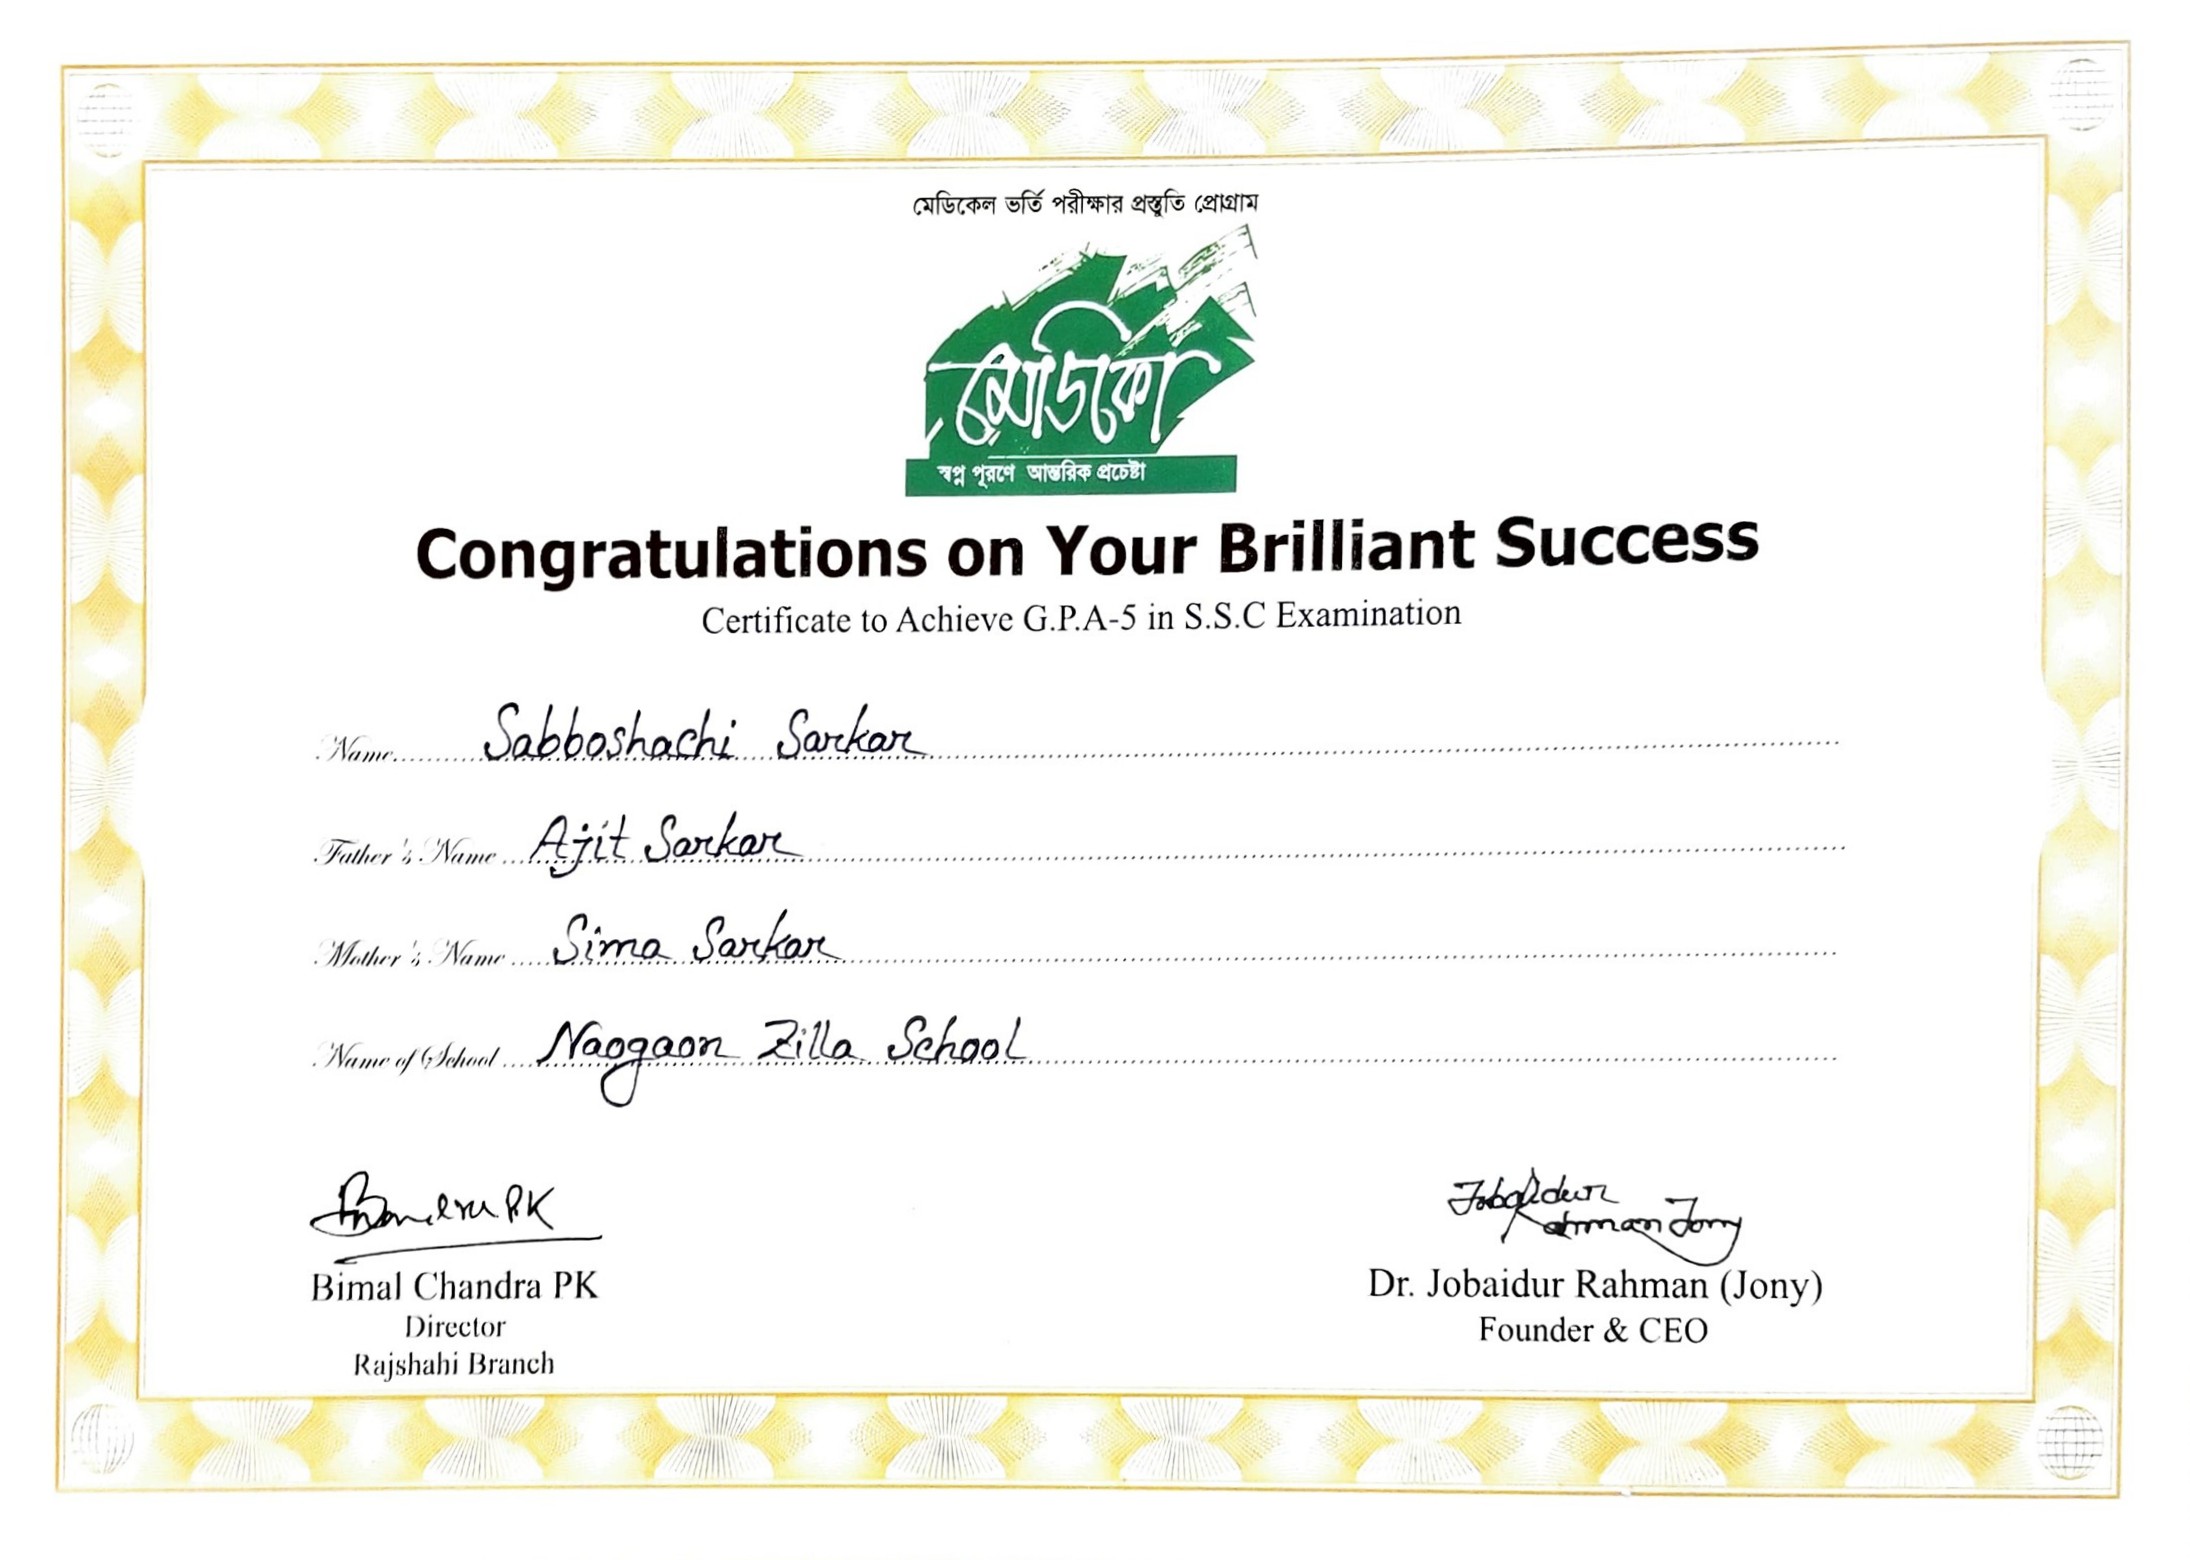 মেডিকেল ভর্তি পরীক্ষার প্রস্তুতি প্রোগ্রাম
মেডিকো
স্বপ্ন পূরণে আন্তরিক প্রচেষ্টা
Congratulations on Your Brilliant Success
Certificate to Achieve G.P.A-5 in S.S.C Examination
Name Sabboshachi Sarkar
Father's Name Ajit Sarkar
Mother's Name Sima Sarkar
Name of School Naogaon Zilla School
Jobaidur
Rahman Jony
Bimal Chandra PK
Director
Rajshahi Branch
Dr. Jobaidur Rahman (Jony)
Founder & CEO